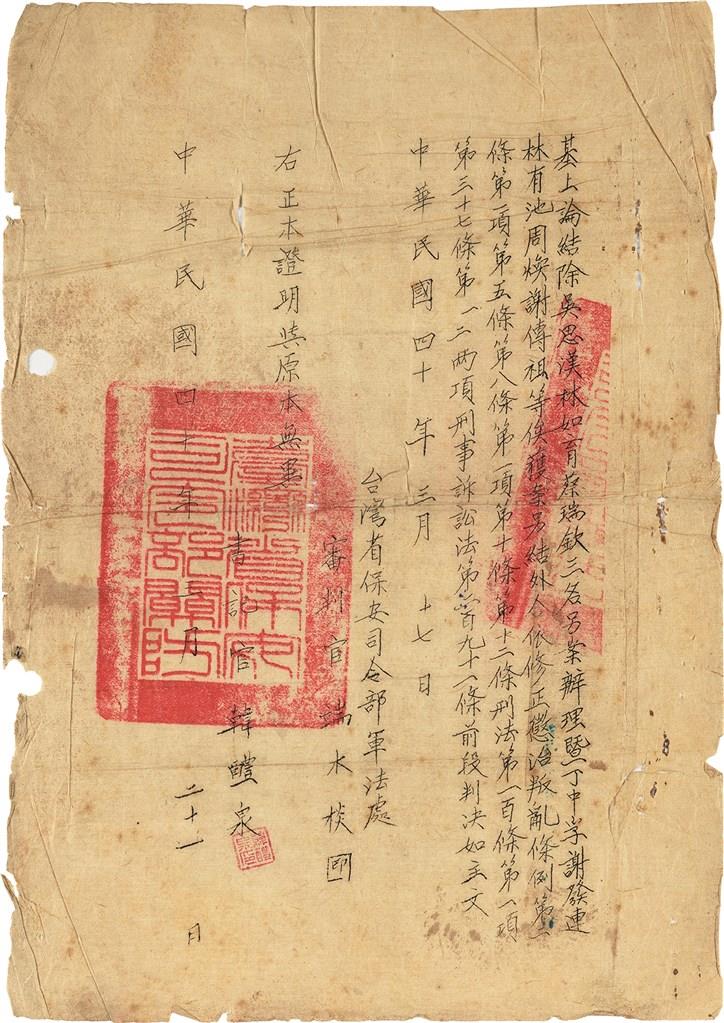 基上論結除吳思漢林如育蔡瑞欽三名另案辦理暨丁中孚謝發連
林有池周煥謝傳祖等俟獲案另結外合依修正懲治叛亂條例第二
條第一項第五條第八條第一項第十條第十二條刑法第一百條第一項
第三十七條第一二兩項刑事訴訟法第二百九十一條前段判決如主文
中華民國四十年三月十七日
台灣省保安司令部軍法處
審判官 端木棪 印
右正本證明與原本無異
書記官 韓醴泉
中華民國四十年三月二十一日
臺灣省保安司令部關防